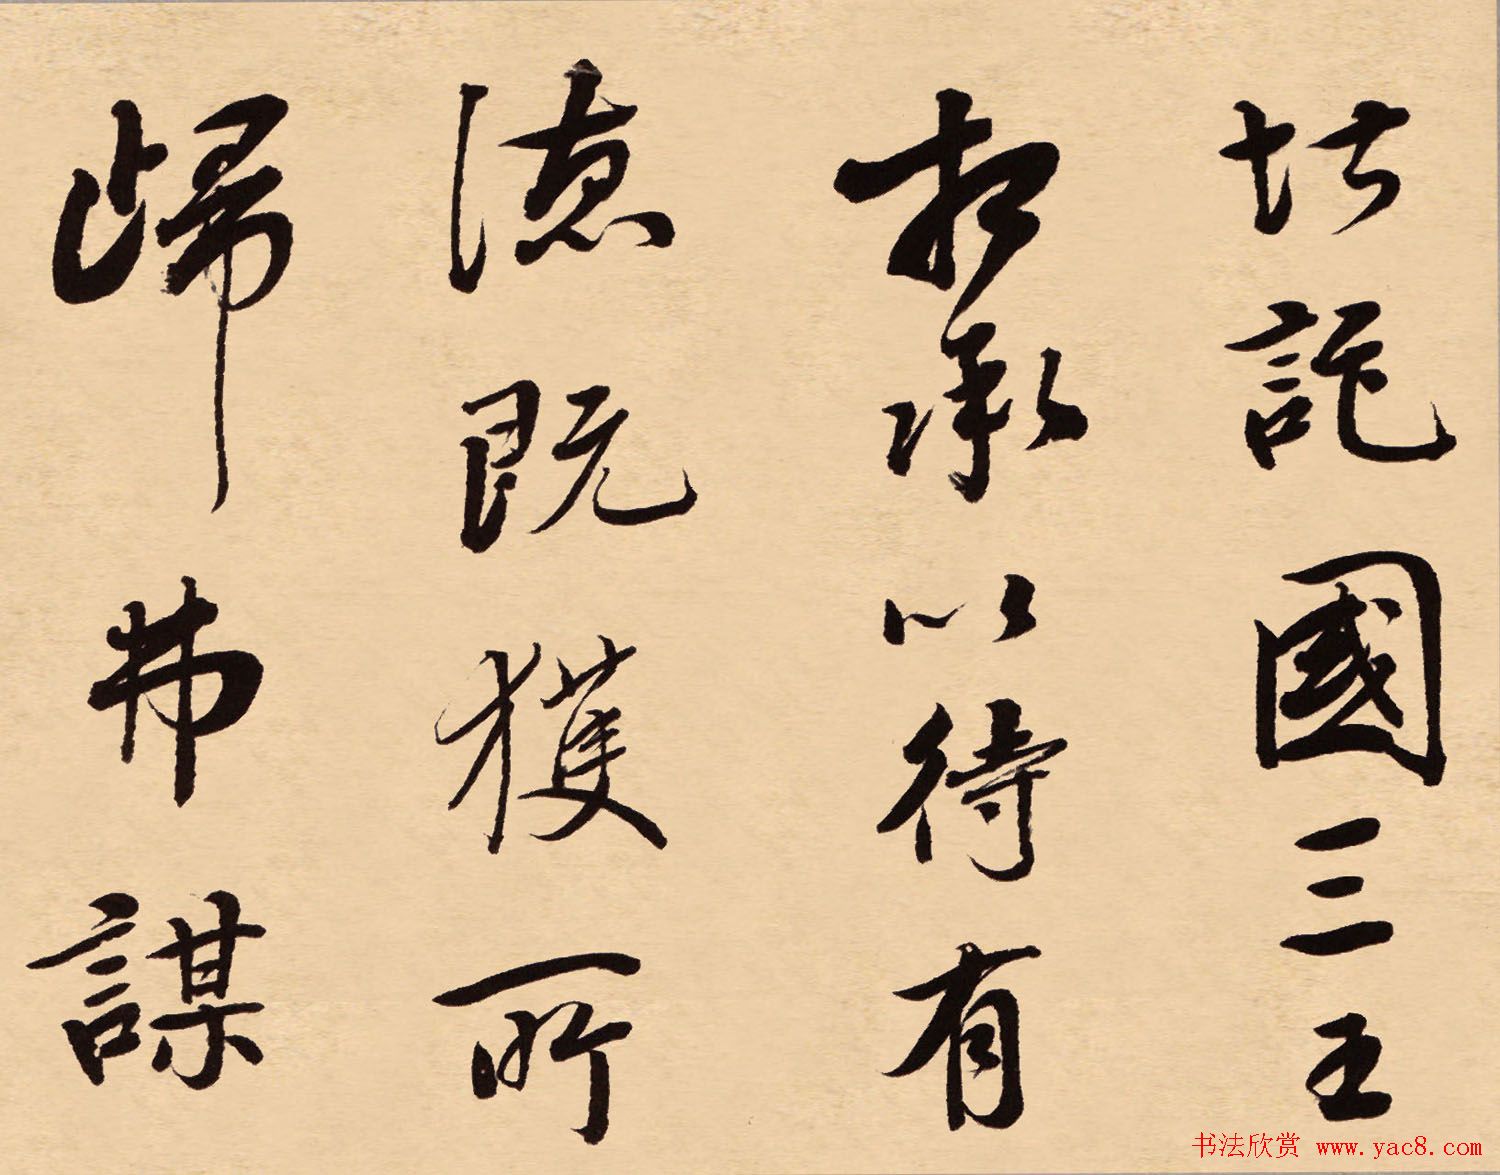 堪託國三王
相承以待有
德既獲所
歸弗謀
书法欣赏 www.yac8.com